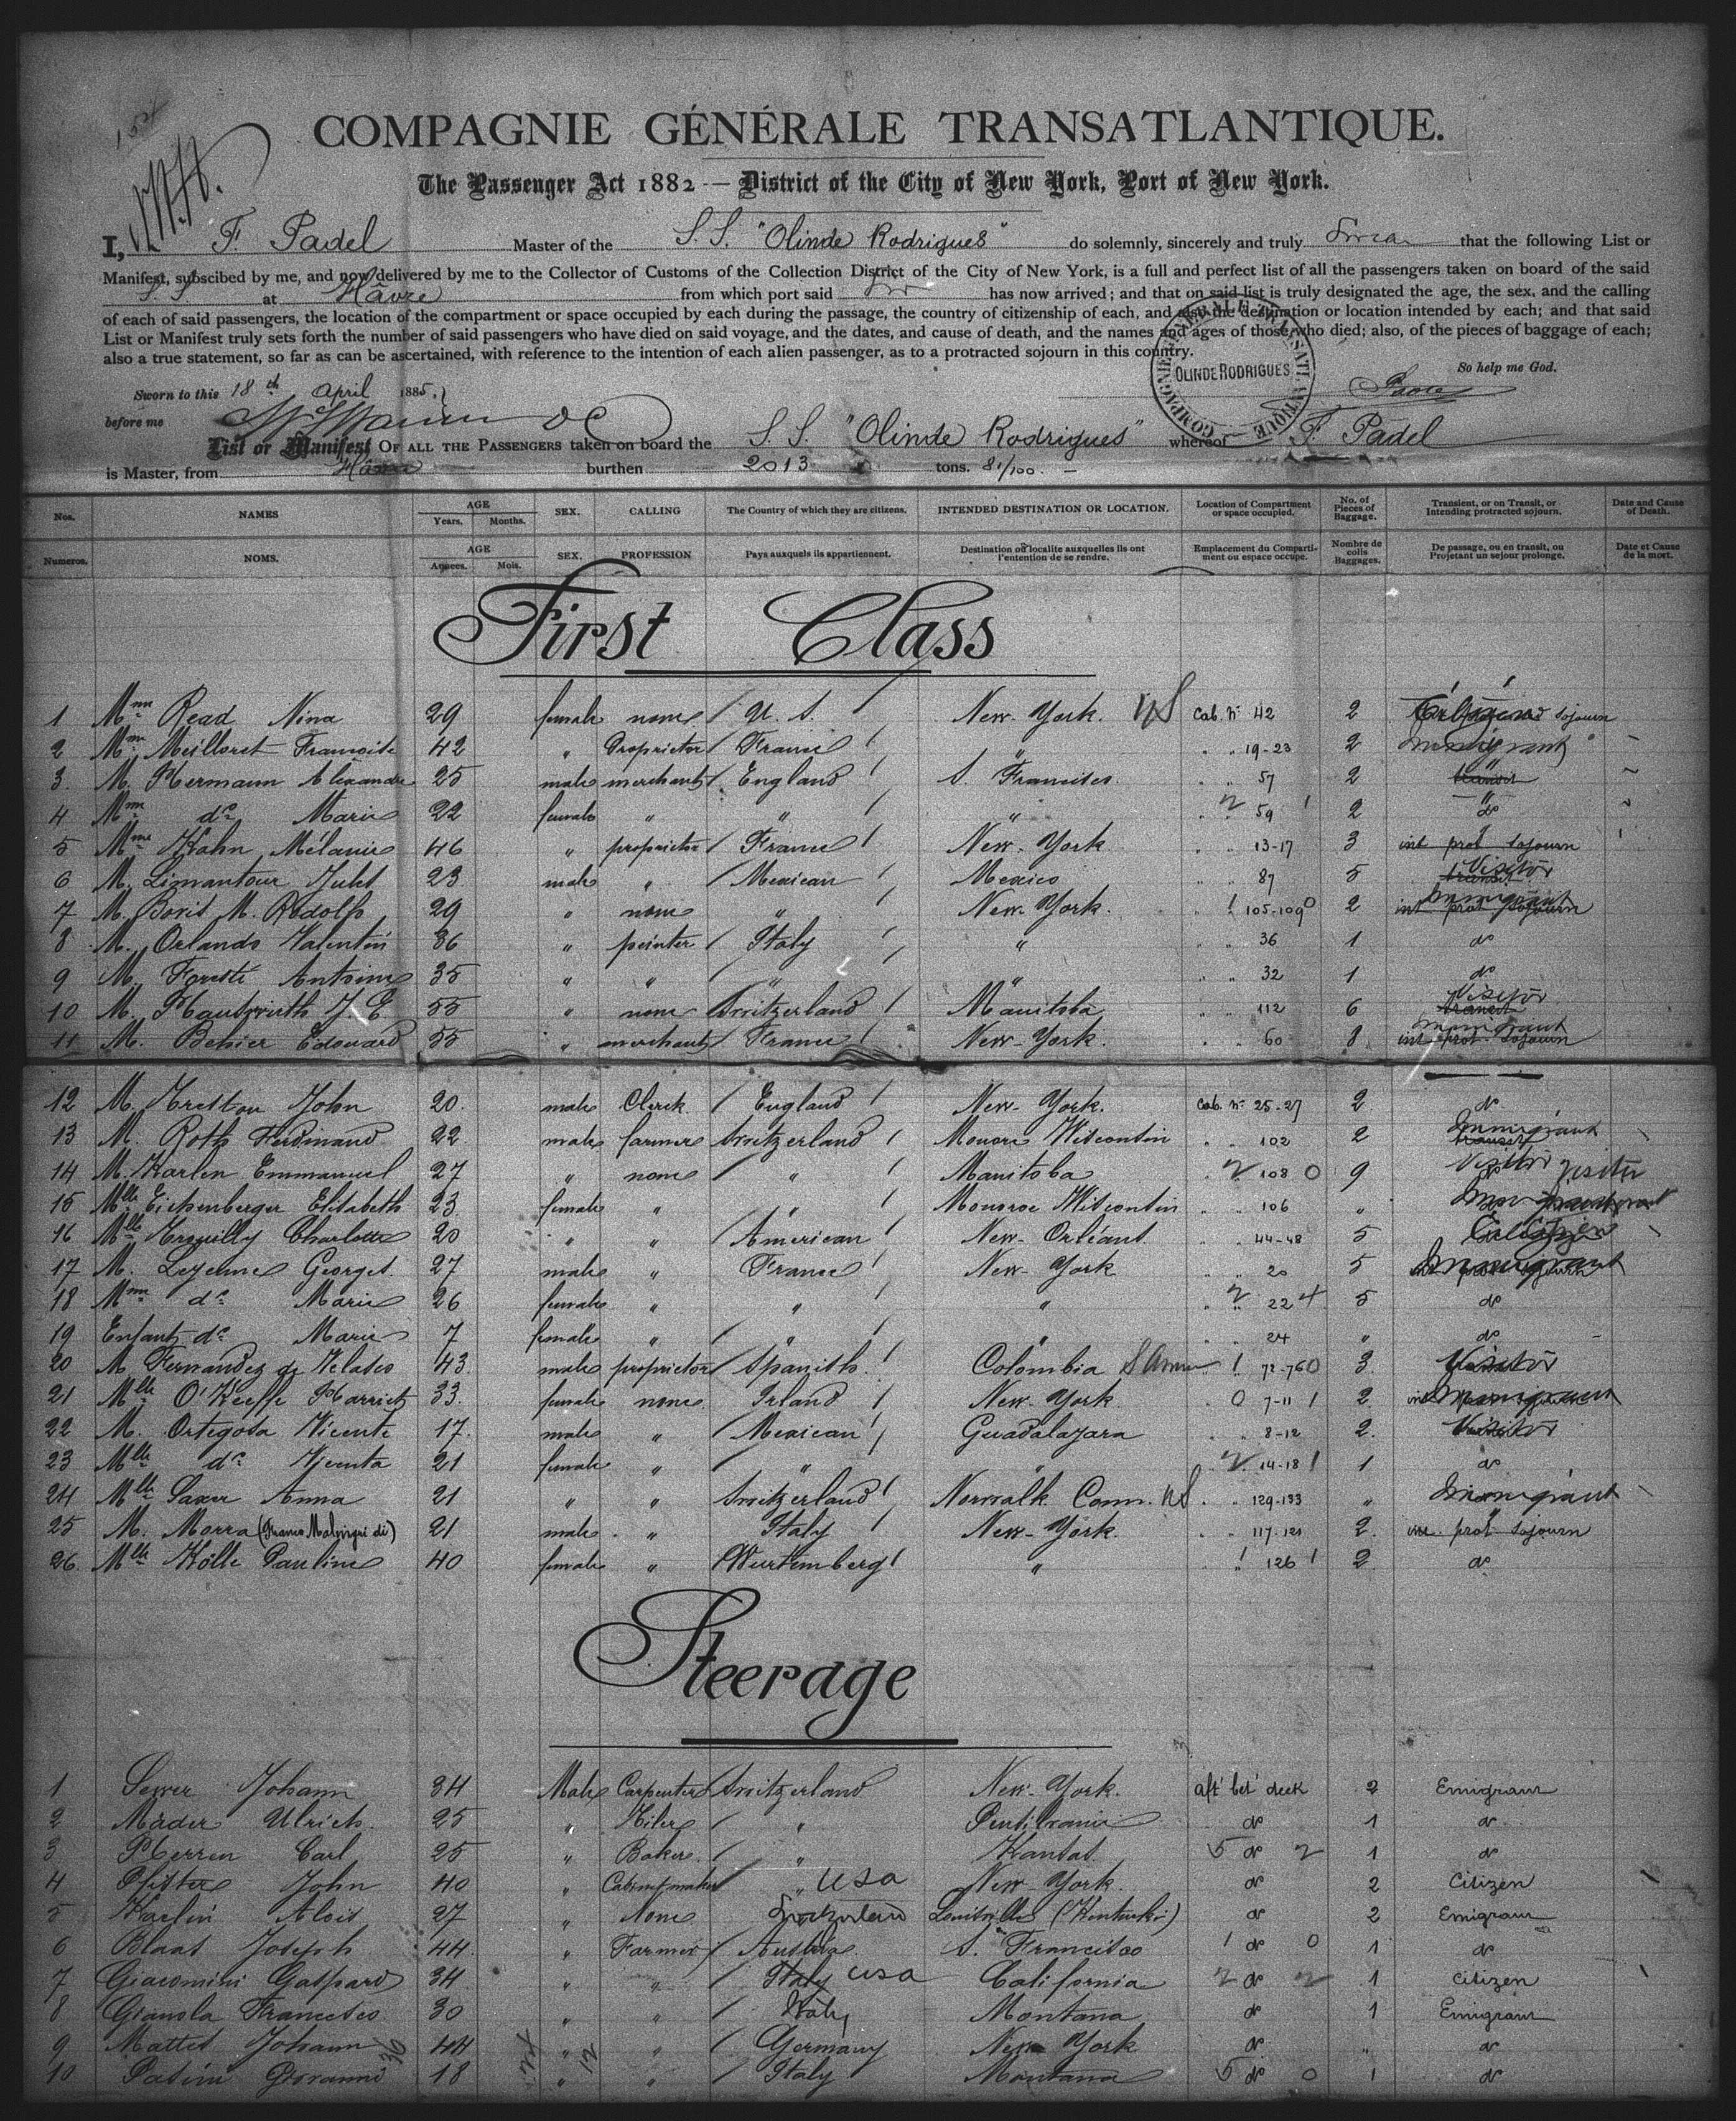 COMPAGNIE GÉNÉRALE TRANSATLANTIQUE.
The Passenger Act 1882 — District of the City of New York, Port of New York.
I, F. Padel Master of the S.S. "Olinde Rodrigues" do solemnly, sincerely and truly Swear that the following List or
Manifest, subscibed by me, and now delivered by me to the Collector of Customs of the Collection District of the City of New York, is a full and perfect list of all the passengers taken on board of the said
S.S at Hâvre from which port said has now arrived; and that on said list is truly designated the age, the sex, and the calling
of each of said passengers, the location of the compartment or space occupied by each during the passage, the country of citizenship of each, and also the destination or location intended by each; and that said
List or Manifest truly sets forth the number of said passengers who have died on said voyage, and the dates, and cause of death, and the names and ages of those who died; also, of the pieces of baggage of each;
also a true statement, so far as can be ascertained, with reference to the intention of each alien passenger, as to a protracted sojourn in this country.
So help me God.
COMPAGNIE GÉNÉRALE TRANSATLANTIQUE
OLINDE RODRIGUES
Sworn to this 18th April 1885.
before me
List or Manifest OF ALL THE PASSENGERS taken on board the S.S. "Olinde Rodrigues" whereof F. Padel
is Master, from Hâvre burthen 2013 tons. 81/100. —
Nos. NAMES AGE Years. Months. SEX. CALLING The Country of which they are citizens. INTENDED DESTINATION OR LOCATION. Location of Compartment or space occupied. No. of Pieces of Baggage. Transient, or on Transit, or Intending protracted sojourn. Date and Cause of Death.
Numeros. NOMS. AGE Annees. Mois. SEX. PROFESSION Pays auxquels ils appartiennent. Destination ou localite auxquelles ils ont l'entention de se rendre. Emplacement du Compartiment ou espace occupe. Nombre de colis Baggages. De passage, ou en transit, ou Projetant un sejour prolonge. Date et Cause de la mort.
First Class
1 Mme Read Nina 29 female none U.S. New-York. Cab. No 42 2 sojourn
2 Mme Meilloret Françoise 42 " Proprietor France " " " 19-23 2 Immigrant
3 M. Hermann Alexandre 25 male merchant England S. Francisco " " 57 2 transit
4 Mme do Marie 22 female " " " " " 59 2 do
5 Mme Kahn Mélanie 46 " proprietor France New-York " " 13-17 3 int prot sojourn
6 M. Limantour Jules 23 male " Mexican Mexico " " 87 5 transit Visitor
7 M. Boris M. Rodolfo 29 " none " New-York. " 105-109 2 int prot sojourn Immigrant
8 M. Orlando Valentin 36 " peinter Italy " " " 36 1 do
9 M. Foresti Antoine 35 " " " " " " 32 1 do
10 M. Hauswirth J. E 55 " none Switzerland Manitoba " " 112 6 transit Visitor
11 M. Behier Edouard 55 " merchant France New-York. " " 60 8 int prot sojourn Immigrant
12 M. Kreston John 20 male Clerk England New-York. Cab. No 25-27 2 do
13 M. Roth Ferdinand 22 male farmer Switzerland Monroe Wisconsin " " 102 2 transit Immigrant
14 M. Karlen Emmanuel 27 " none " Manitoba " 108 9 Visitor visitor
15 Mlle Eichenberger Elisabeth 23 female " " Monroe Wisconsin " " 106 "
16 Mlle Charlotte 20 " " American New-Orléans " " 44-48 5 Citizen
17 M. Lejeune Georges 27 male " France New-York " " 20 5 int prot sojourn Immigrant
18 Mme do Marie 26 female " " " " " 22 5 do
19 Enfant do Marie 7 female " " " " " 24 " do
20 M. Fernandez de Velasco 43 male proprietor Spanish Colombia S Amer 72-76 3 Visitor
21 Mlle O'Keeffe Harriet 33 female none Irland New-York " 7-11 2 Immigrant
22 M. Ortigosa Vicente 17 male " Mexican Guadalajara " " 8-12 2 Visitor
23 Mlle do Vicenta 21 female " " " " 14-18 1 do
24 Mlle Saxer Anna 21 " " Switzerland Norwalk Conn. " " 129-133 " Immigrant
25 M. Morra (Franco Malvigri di) 21 male " Italy New-York. " " 117-121 2 int prot sojourn
26 Mlle Kölle Pauline 40 female " Wurtemberg " " 126 2 do
Steerage
1 Johann 34 Male Carpenter Switzerland New-York. aft bet deck 2 Emigrant
2 Mäder Ulrich 25 " " do 1 do
3 Herren Carl 25 " Baker " Kansas 5 do 2 1 do
4 Pfister John 40 " Cabinetmaker " USA New York. do 2 Citizen
5 Kaelin Alois 27 " None Switzerland Louisville (Kentucki) do 2 Emigrant
6 Blaas Joseph 44 " Farmer Austria S. Francisco 1 do 0 1 do
7 Giacomini Gaspard 34 " " Italy USA California 2 do 2 1 Citizen
8 Gianola Francesco 30 " " Italy Montana do 1 Emigrant
9 Mattes Johann 44 " " Germany New York do " do
10 Patini Giovanni 18 " " Italy Montana 5 do 0 1 do